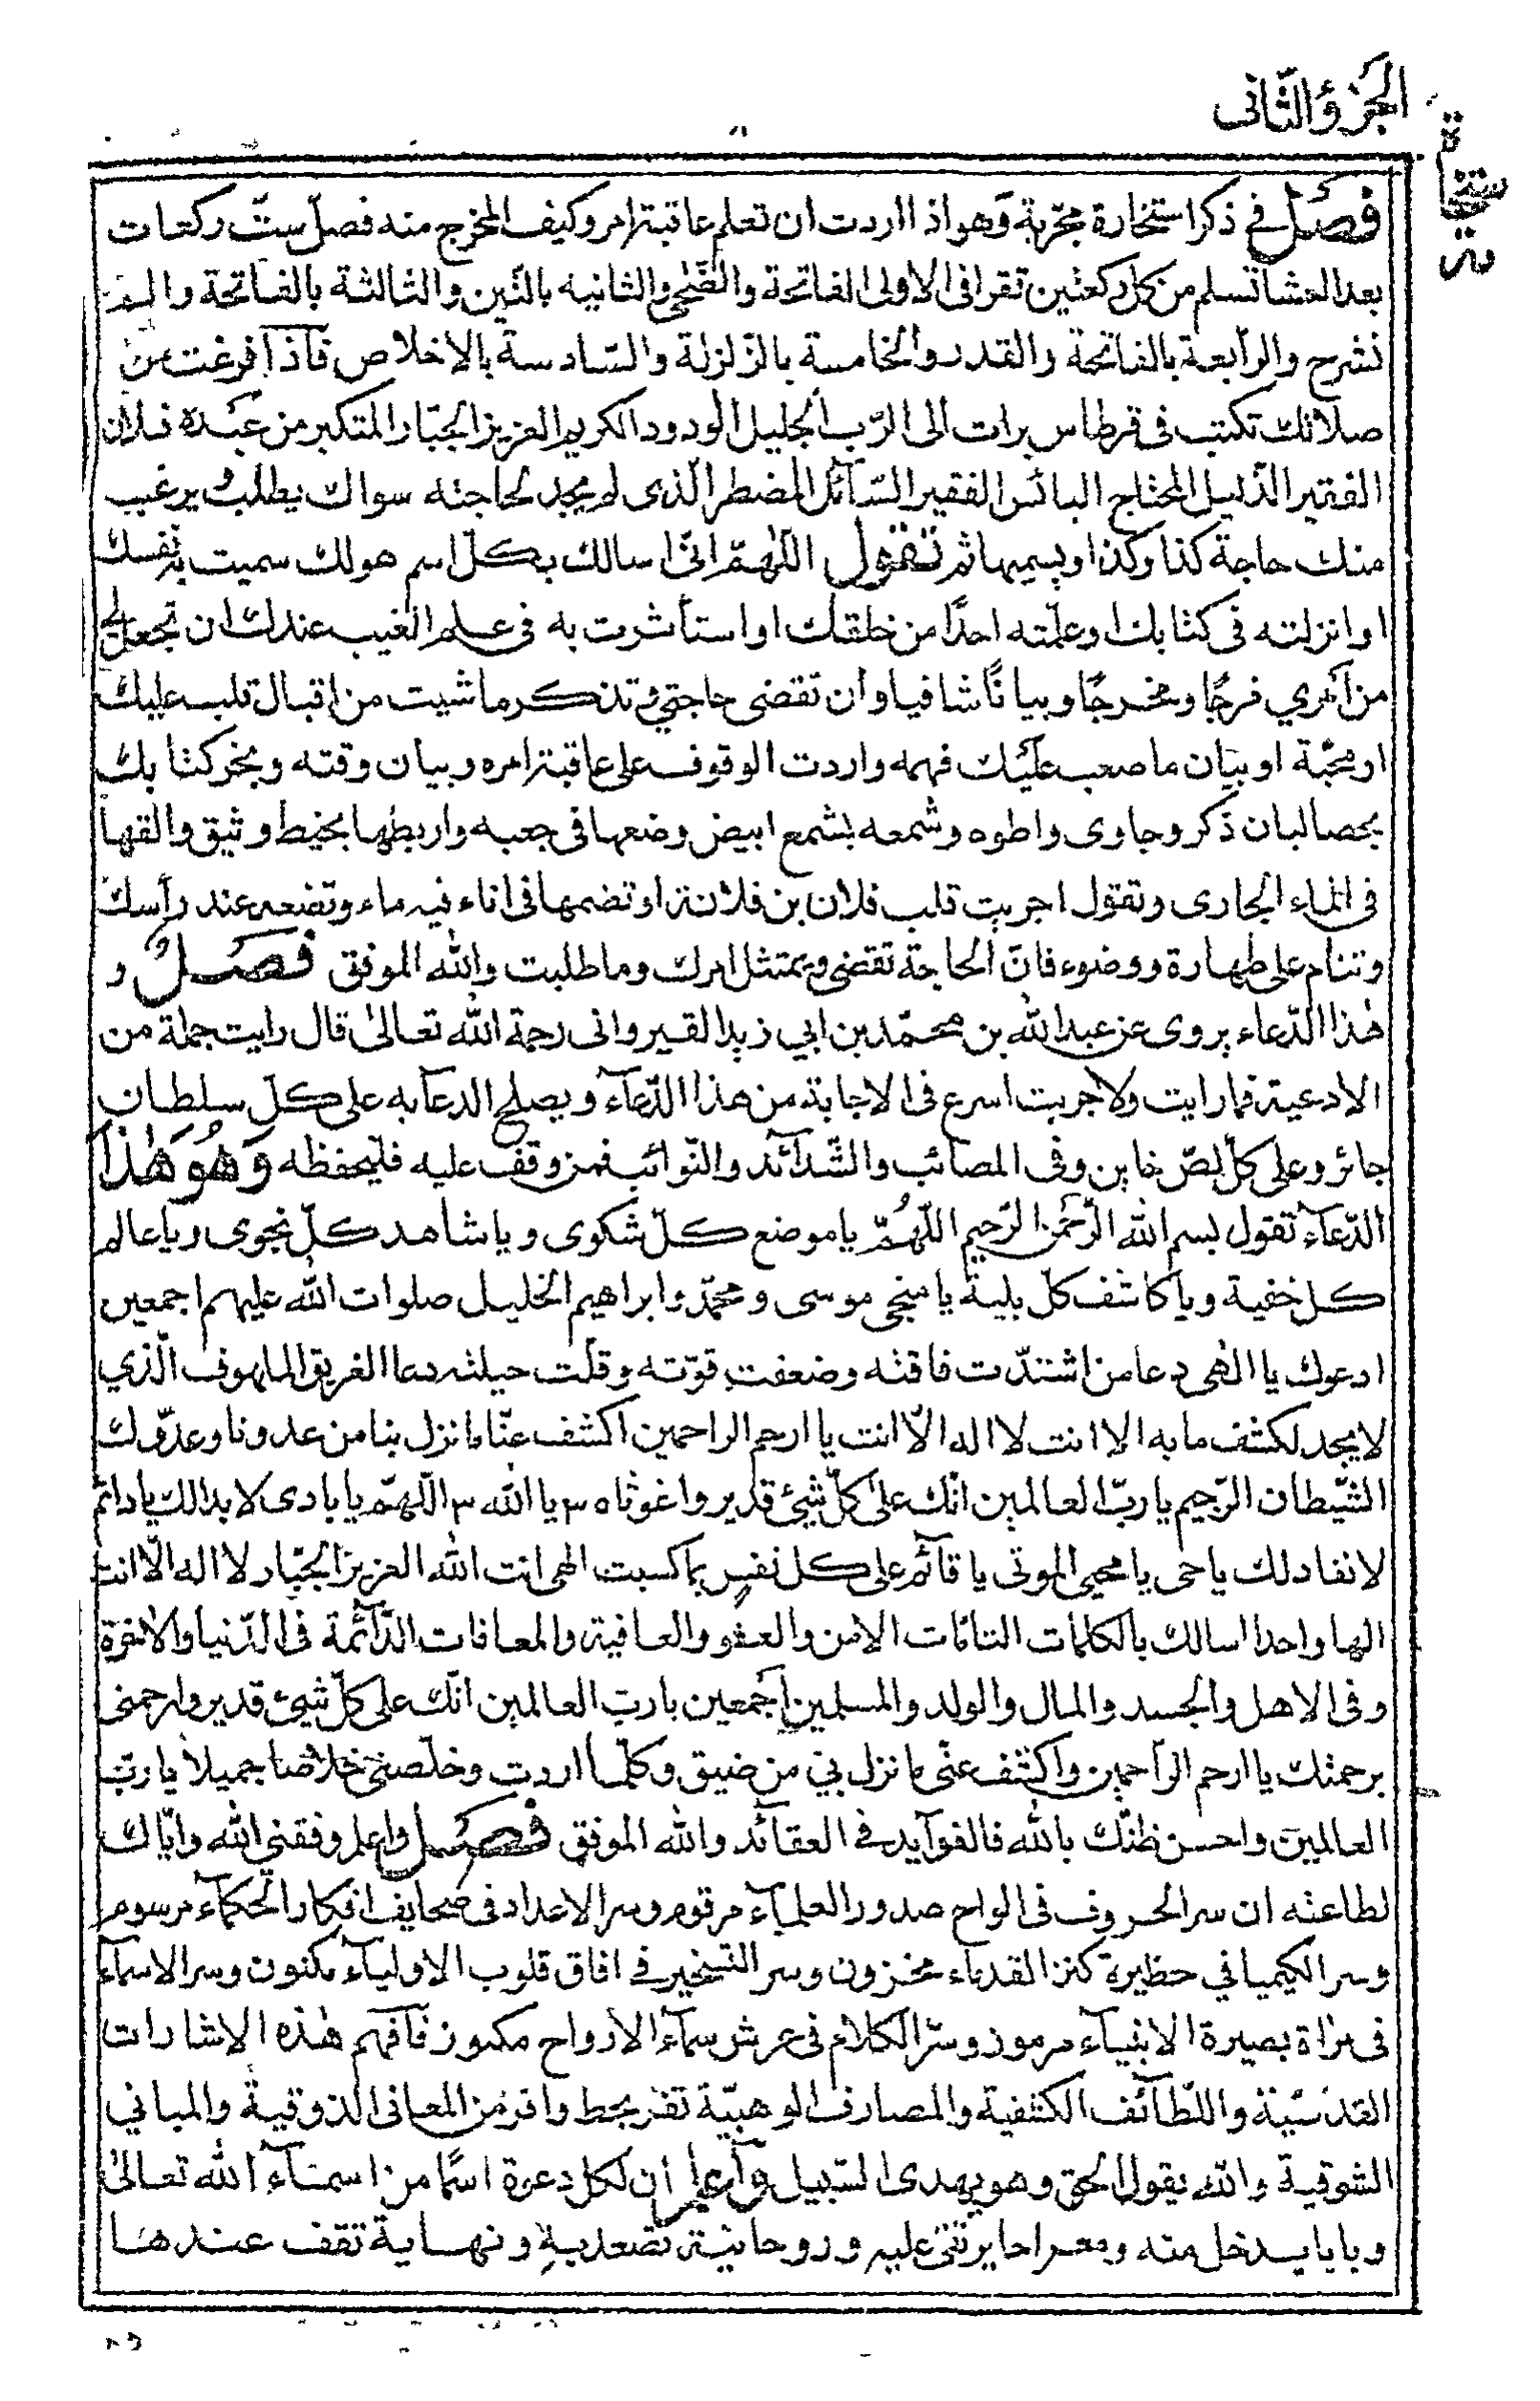 الجزؤ الثّانى
فصل في ذكر استخارة مجرّبة وهو اذا اردت ان تعلم عاقبة امر وكيف المخرج منه فصلّ ستّ ركعات
بعد العشا تسلم من كل ركعتين تقرا فى الاولى الفاتحة والضّحى والثانيه بالتّين والثالثة بالفاتحة والم
نشرح والرابعة بالفاتحة والقدر والخامسة بالزّلزلة والسّادسة بالاخلاص فاذا فرغت من
صلاتك تكتب فى قرطاس برات الى الرّب الجليل الودود الكريم العزيز الجبّار المتكبر من عبده فلان
الفقير الذّليل المحتاج البائس الفقير السّآئل المضطر الّذى لم يجد لحاجته سواك يطلب يرغب
منك حاجة كذا وكذا ويسميها ثم تقول اللّهمّ انّى اسالك بكلّ اسم هو لك سميت به نفسك
او انزلته فى كتابك او علمته احدًا من خلقك او استأثرت به فى علم الغيب عندك ان تجعل لى
من امري فرجًا ومخرجًا وبيانًا شافيا وان تقضى حاجتي وتذكر ما شيت من اقبال قلب عليك
او محبّة او بيان ما صعب عليك فهمه واردت الوقوف على عاقبة امره وبيان وقته وبخر كتابك
بحصالبان ذكر وجاوى واطوه وشمعه بشمع ابيض وضعها فى جعبه واربطها بخيط وثيق والقها
فى الماء الجارى وتقول اجريت قلب فلان بن فلانة او تضمها فى اناء فيه ماء وتضعه عند رأسك
وتنام على طهارة ووضوء فانّ الحاجة تقضى ويمتثل امرك وما طلبت والله الموفق فصل و
هٰذا الدّعاء يروى عن عبد الله بن محمّد بن ابي زيد القيروانى رحمة الله تعالىٰ قال رايت جملة من
الادعية فما رايت ولا جربت اسرع فى الاجابة من هذا الدّعآء ويصلح الدعآ به على كلّ سلطان
جائر وعلى كل لصّ خاين وفى المصائب والشّدآئد والنّوائب فمن وقف عليه فليحفظه وهو هٰذا
الدّعآء تقول بسم الله الرّحمٰن الرّحيم اللّهمّ يا موضع كلّ شكوى ويا شاهد كلّ نجوى ويا عالم
كل خفية ويا كاشف كلّ بلية يا منجى موسى ومحمّد وابراهيم الخليل صلوات الله عليهم اجمعين
ادعوك يا الهى دعا من اشتدّت فاقته وضعفت قوّته وقلّت حيلته دعا الغريق الملهوف الّذي
لا يجد لكشف ما به الا انت لا اله الّا انت يا ارحم الراحمين اكشف عنّا ما نزل بنا من عدونا وعدّوك
الشّيطان الرّجيم يا ربّ العالمين انّك على كلّ شيئ قدير واغوثاه ٣ يا الله ٣ اللّهمّ يا بادى لا بدا لك يا دائم
لا نفاد لك يا حى يا محيى الموتى يا قآئم على كل نفسٍ بما كسبت الهى انت الله العزيز الجبّار لا اله الّا انت
الها واحدا اسالك بالكلمات التامّات الامن والعفو والعافية والمعافات الدّآئمة فى الدّنيا والاخرة
وفى الاهل والجسد والمال والولد والمسلمين اجمعين يا ربّ العالمين انّك على كلّ شيئ قدير وارحمنى
برحمتك يا ارحم الرّاحمين واكشف عنّى ما نزل بيَ من ضيق وكلّما اردت وخلّصنى خلاصًا جميلا يا ربّ
العالمين واحسن ظنّك بالله فالفوآيد في العقائد والله الموفق فصل واعلم وفقني الله وايّاك
لطاعته ان سر الحروف فى الواح صدور العلمآء مرقوم وسر الاعداد فى صحايف افكار الحكمآء مرسوم
وسر الكيميا في حظيرة كنز القدماء مخزون وسر التسخير في افاق قلوب الاوليآء مكنون وسر الاسمآء
فى مراة بصيرة الانبيآء مرموز وسرّ الكلام فى عرش سمآء الارواح مكنوز فافهم هٰذه الاشارات
القدسّية واللّطآئف الكشفية والمصارف الوهبيّة تفز بحظ وافر من المعانى الذوقية والمباني
الشوقية والله يقول الحق وهو يهدى السّبيل واعلم ان لكل دعوة اسمًا من اسمآء الله تعالىٰ
وبابا يدخل منه ومعراجا يرتقى عليه وروحانية تصعد به ونهاية تقف عندها